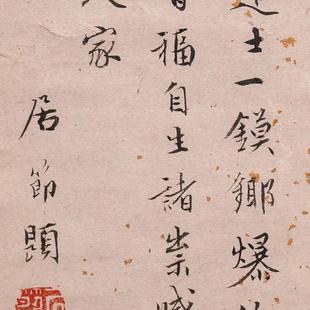 士一鏌鋣爆
福自生諸祟滅
家
居節題